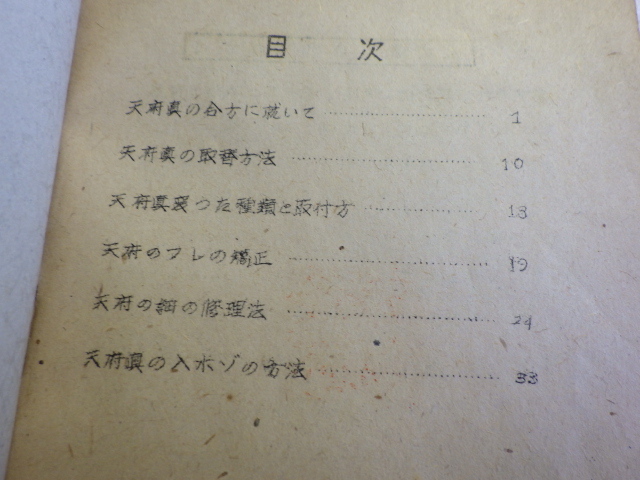 目次
天府真の合方に就いて 1
天府真の取替方法 10
天府真変つた種類と取付方 13
天府のフレの矯正 19
天府の細の修理法 24
天府真の入ホゾの方法 33